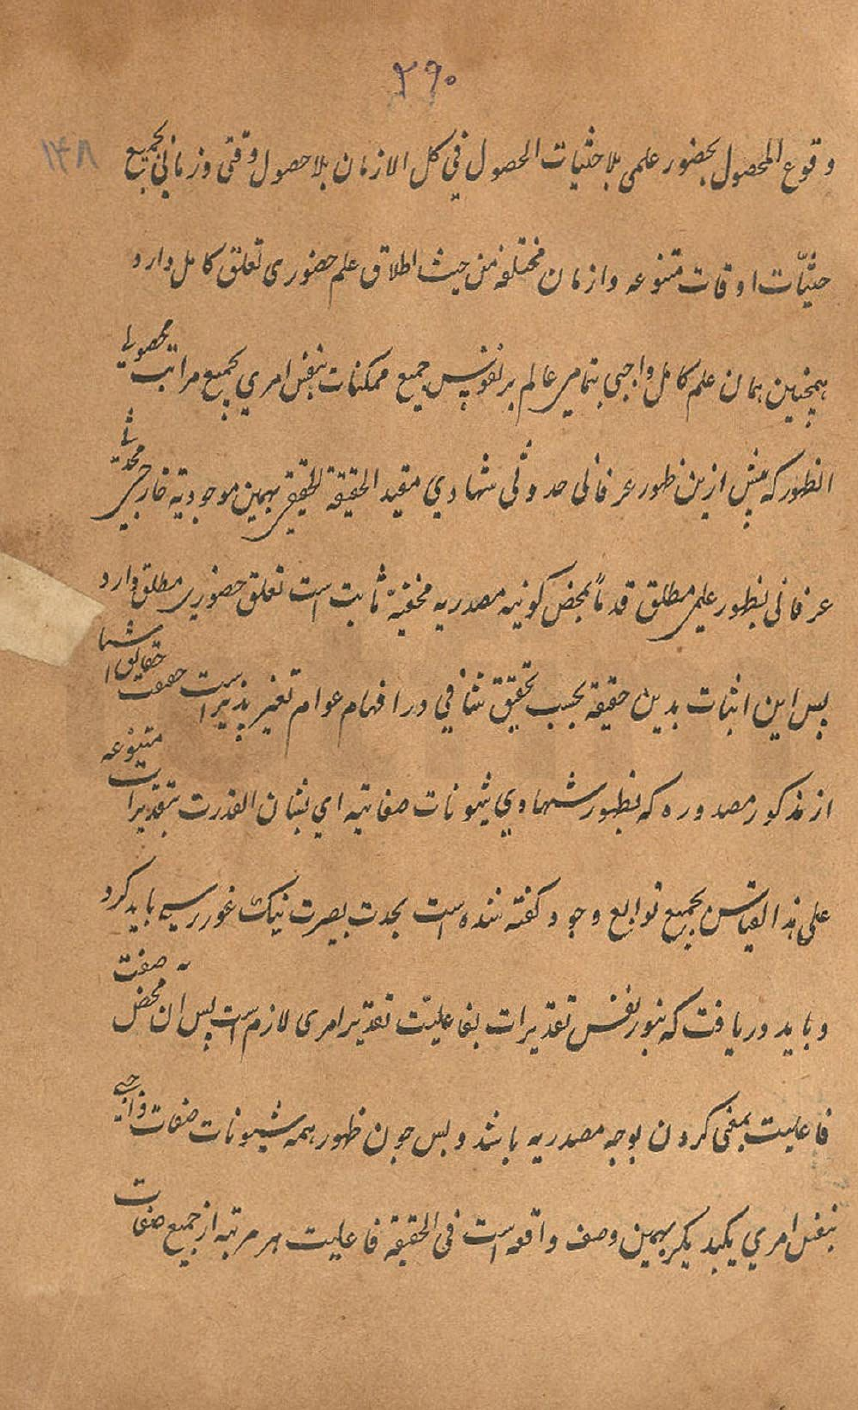 ۲۹۰
۱۴۸
وقوع المحصول بحضور علمی بلا حثیات الحصول فی کل الازمان بلا حصول وقتی و زمانی بجمیع
حثیّات اوقات متنوعه و ازمان مختلفه من حیث اطلاق علم حضوری تعلق کامل دارد
همچنین همان علم کامل واجبی بتمامی عالم بر نفوس جمیع ممکنات بنفس امری بجمیع مراتب محصولی
الظهور که پیش ازین ظهور عرفانی حدوثی شهادی مقید الحقیقة الحقیقی بهمین موجودیة خارجی
عرفانی بظهور علمی مطلق قدماً بمحض کونیه مصدریه مخفیّه ثابت است تعلق حضوری مطلق دارد
پس این اثبات بدین حقیقة بحسب تحقیق شافی در افهام عوام تغیر پذیر است حقیقت حقایق اشیا
از مذکور مصدوره که بظهور شهادی شیونات صفاتیه ای بشان القدرت بتقدیرات متنوعه
علی هذا القیاس بجمیع توابع وجود گفته شده است بحدت بصیرت نیک غور رسی باید کرد
و باید دریافت که بنور نفس تقدیرات بفاعلیّت تقدیر امری لازم است پس ان محض صفت
فاعلیت بمعنی کردن بوجه مصدریه باشد و بس چون ظهور همه شیونات صفات واجبی
بنفس امری یکبدیگر بهمین وصف واقعه است فی الحقیقة فاعلیت هر مرتبه از جمیع صفات